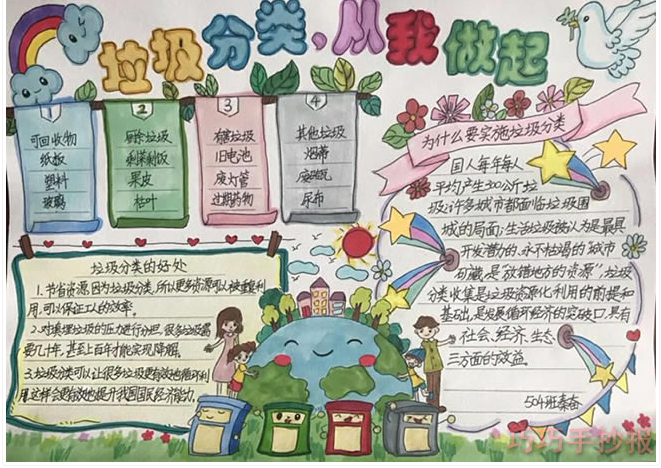 垃圾分类、从我做起
1
可回收物
纸板
塑料
玻璃
2
厨余垃圾
剩菜剩饭
果皮
枯叶
3
有害垃圾
旧电池
废灯管
过期药物
4
其他垃圾
烟蒂
尿布
为什么要实施垃圾分类
国人每年每人
平均产生300公斤垃
圾许多城市都面临垃圾围
城的局面,生活垃圾被认为是最具
开发潜力的、永不枯竭的“城市
矿藏”是“放错地方的资源”,垃圾
分类收集是垃圾资源化利用的前提和
基础,是发展循环经济的突破口,具有
社会、经济、生态
三方面的效益。
504班秦奋
垃圾分类的好处
1.节省资源.因为垃圾分类,所以更多资源可以被重复利
用,可以保证工人的效率。
2.对填埋垃圾的压力进行分担.很多垃圾需
要几十年,甚至上百年才能实现降解。
3.垃圾分类可以让很多垃圾更有效地循环利
用.这样会更有效地提升我国国民经济能力。
巧巧手抄报